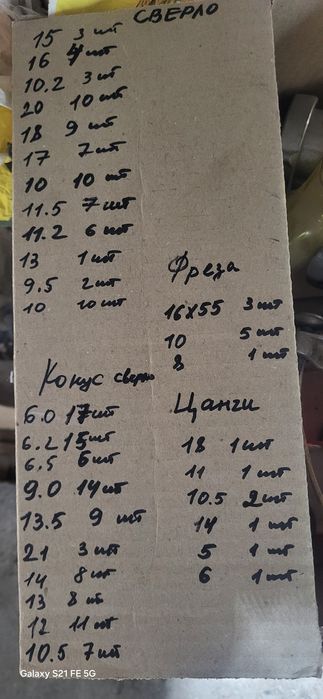 СВЕРЛО
15 3 шт
16 4 шт
10.2 3 шт
20 10 шт
18 9 шт
17 7 шт
10 10 шт
11.5 7 шт
11.2 6 шт
13 1 шт
9.5 2 шт
10 10 шт
Фреза
16x55 3 шт
10 5 шт
8 1 шт
Конус сверло
6.0 17 шт
6.2 15 шт
6,5 6 шт
9.0 14 шт
13.5 9 шт
21 3 шт
14 8 шт
13 8 шт
12 11 шт
10.5 7 шт
Цанги
18 1 шт
11 1 шт
10.5 2 шт
14 1 шт
5 1 шт
6 1 шт
Galaxy S21 FE 5G